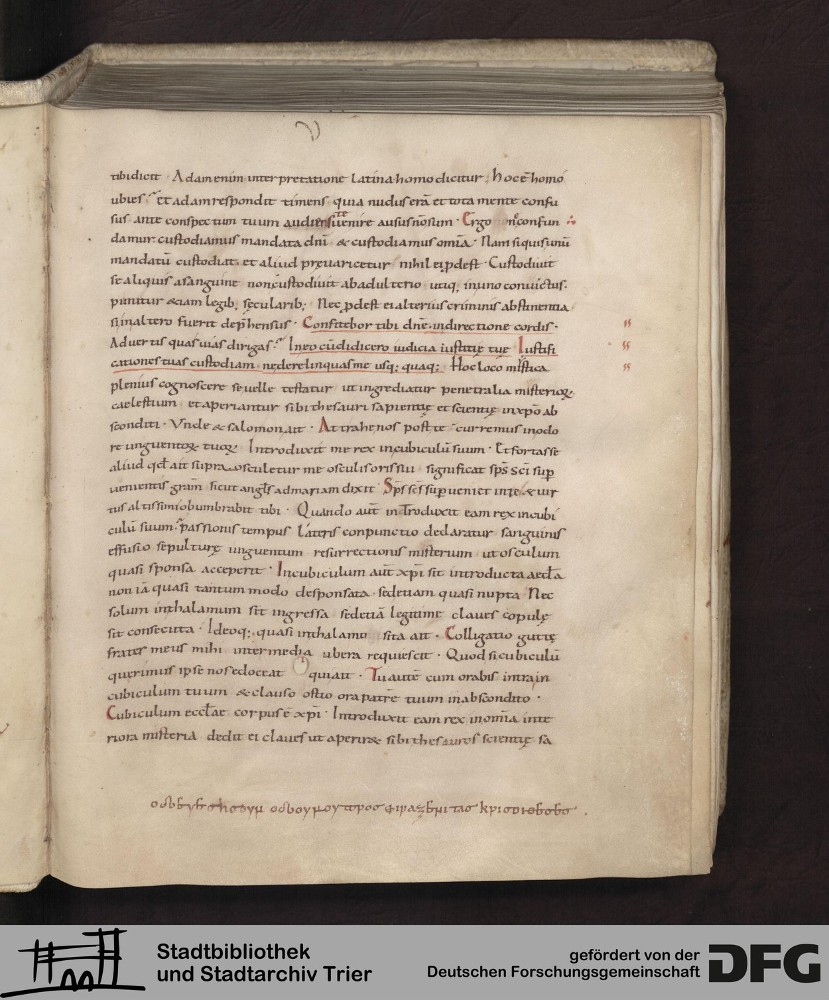 tibi dicit · Adam enim interpretatione latina homo dicitur · hoc ē homo
ubi es · et adam respondit timens quia nudus erā et tota mente confu
sus ante conspectum tuum audiens te uenire ausus nō sum · Ergo confun
damur custodiamus mandata dn̄i & custodiamus om̄ia · Nam si quis unū
mandatū custodiat et aliud preuaricetur nihil ei ꝓdest · Custodiuit
se aliquis a sanguine non custodiuit ab adulterio utiq; in uno conuictus
punitur &iam legib; secularib; Nec ꝓdest ei alterius criminis abstinentia
si in altero fuerit dep̄hensus · Confitebor tibi dn̄e in directione cordis ·
Aduertis quas uias dirigas · In eo cū didicero iudicia iustitię tuę Iustifi
cationes tuas custodiam ne derelinquas me usq; quaq; Hoc loco mistica
plenius cognoscere se uelle testatur ut ingrediatur penetralia misterioꝝ
caelestium et aperiantur sibi thesauri sapientię et scientię in xp̄o ab
sconditi · Vnde & salomon ait · Attrahe nos post te curremus in odo
re unguentoꝝ tuoꝝ Introduxit me rex in cubiculū suum · Et fortasse
aliud qd̄ ait supra osculetur me osculis oris sui significat sp̄s sc̄i suꝑ
uenientis gram̄ sicut angl̄s ad mariam dixit · Sp̄s sc̄s suꝑueniet in te & uir
tus altissimi obumbrabit tibi · Quando aut̄ introduxit eam rex in cubi
culū suum · passionis tempus lateris conpunctio declaratur sanguinis
effusio sepulturę unguentum resurrectionis misterium ut osculum
quasi sponsa acceperit · In cubiculum aut̄ xp̄i sit introducta aeccl̄a
non iā quasi tantum modo desponsata sed etiam quasi nupta Nec
solum in thalamum sit ingressa sed etiā legitimę claues copulę
sit consecuta · Ideoq; quasi in thalamo sita ait · Colligatio guttę
frater meus mihi inter media ubera requiescit · Quod si cubiculū
querimus ipse nos edoceat qui ait · Tu autē cum orabis intra in
cubiculum tuum & clauso ostio ora patrē tuum in abscondito ·
Cubiculum eccl̄ae corpus ē xp̄i · Introduxit eam rex in om̄ia inte
riora misteria dedit ei claues ut aperiret sibi thesauros scientię sa
Stadtbibliothek
und Stadtarchiv Trier
gefördert von der
Deutschen Forschungsgemeinschaft
DFG